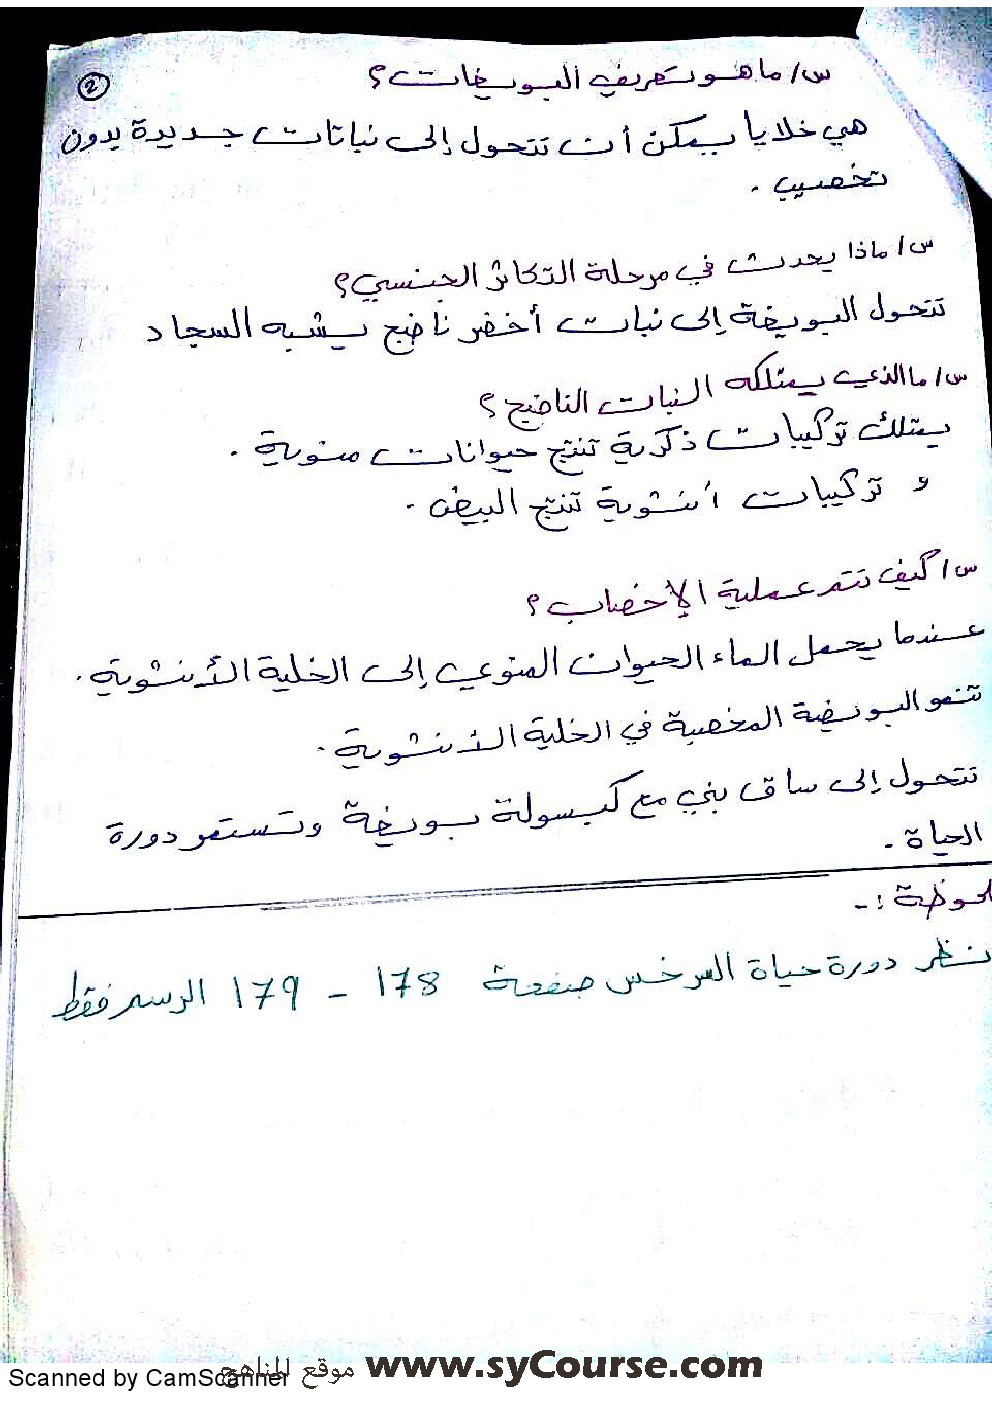 2
س/ ما هو تعريف البويغات؟
هي خلايا يمكن أن تتحول إلى نباتات جديدة بدون
تخصيب .
س/ ماذا يحدث في مرحلة التكاثر الجنسي؟
تتحول البويغة إلى نبات أخضر ناضج يشبه السجاد
س/ ما الذي يمتلكه النبات الناضج؟
يمتلك تركيبات ذكرية تنتج حيوانات منوية .
و تركيبات أنثوية تنتج البيض .
س/ كيف تتم عملية الإخصاب؟
عندما يحمل الماء الحيوان المنوي إلى الخلية الأنثوية .
تنمو البويضة المخصبة في الخلية الأنثوية .
تتحول إلى ساق بني مع كبسولة بويغة وتستمر دورة
الحياة .
لحوظة :-
نظر دورة حياة السرخس صفحة 178 - 179 الرسم فقط
موقع المناهج www.syCourse.com
Scanned by CamScanner